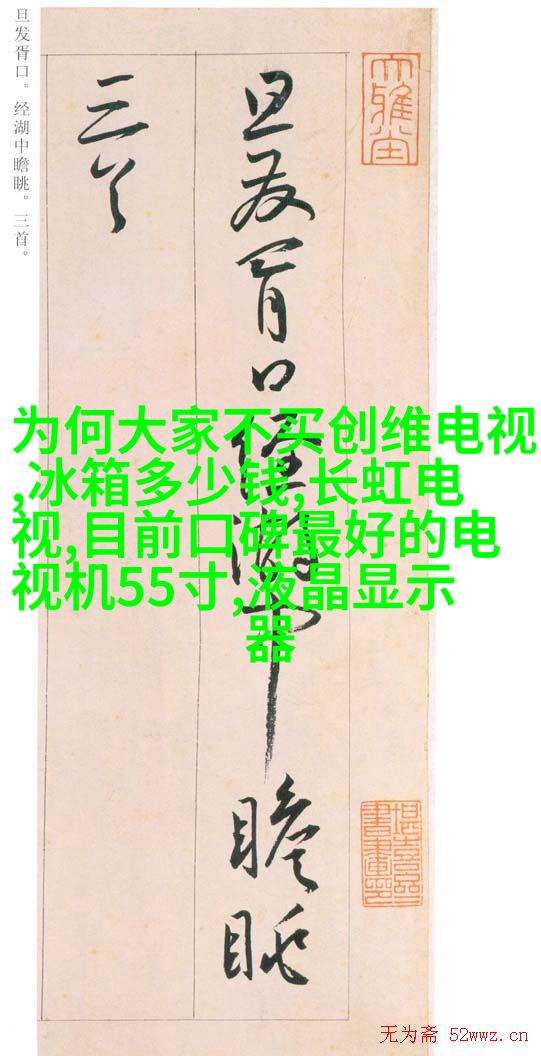 旦发胥口。经湖中瞻眺。三首。
旦发胥口经湖中瞻眺
三首
为何大家不买创维电视
,冰箱多少钱,长虹电
视,目前口碑最好的电
视机55寸,液晶显示
器
大雅堂
无为斋 52wwz.cn